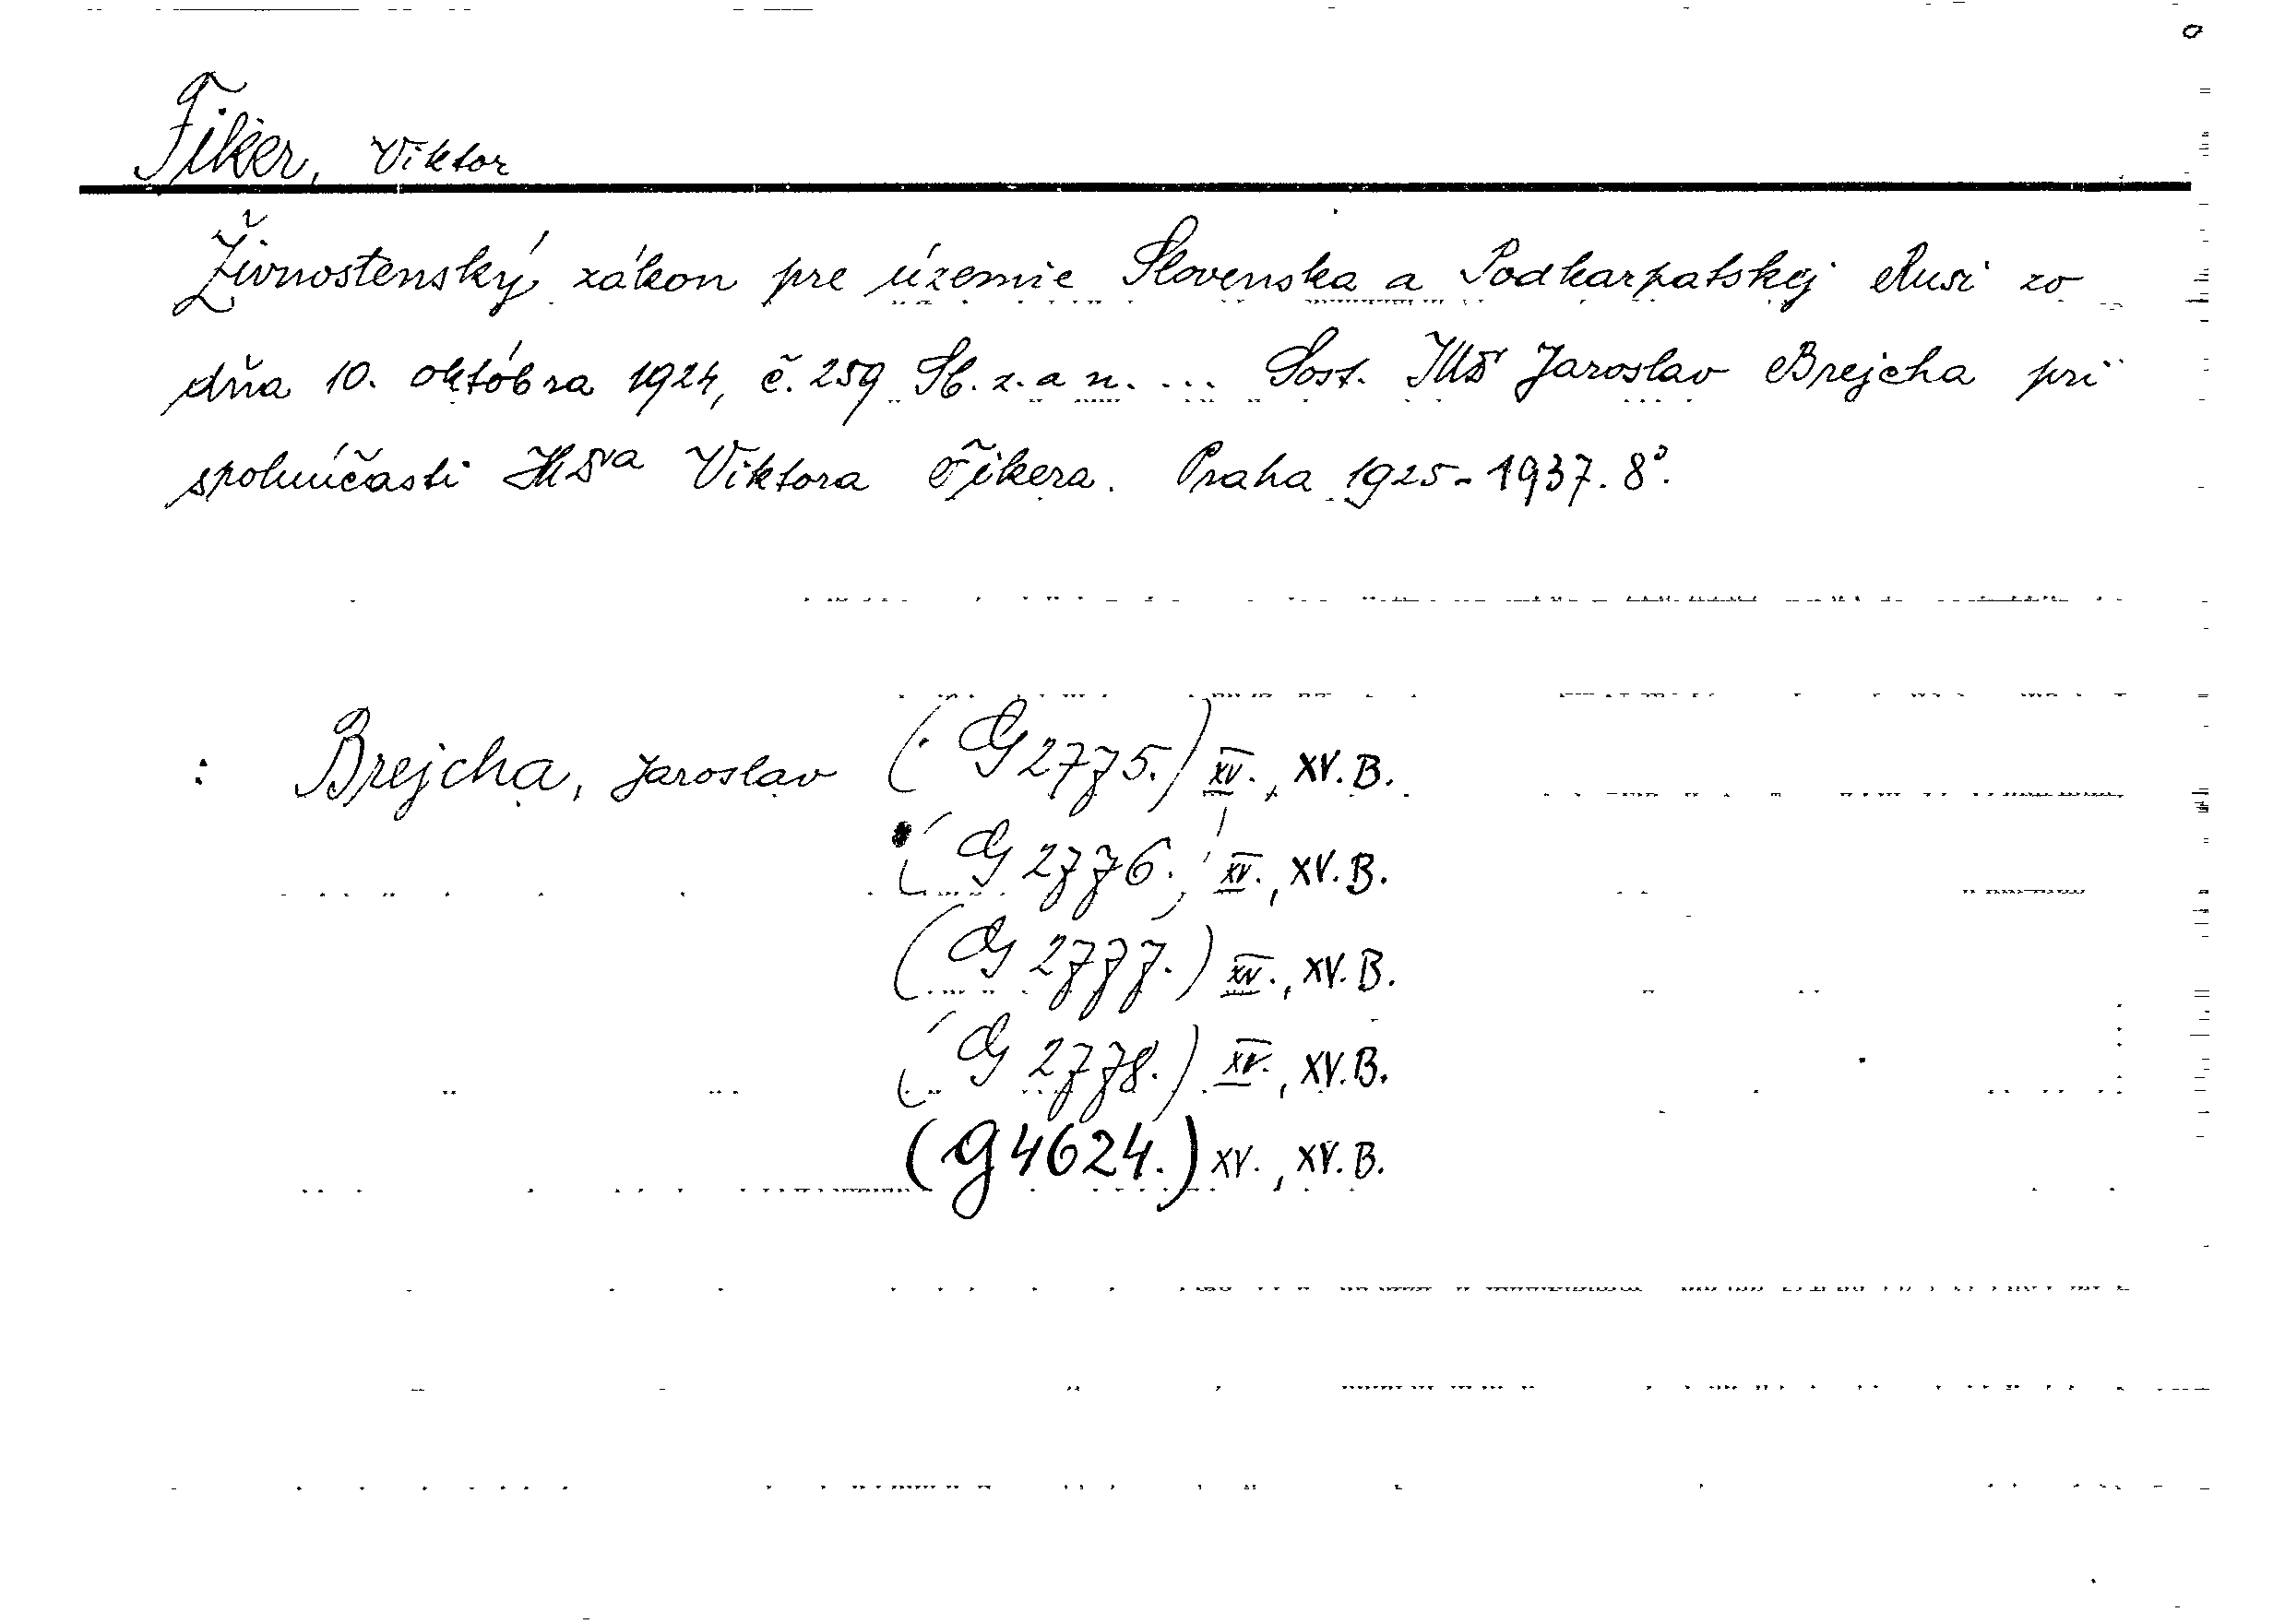 Fiker, Viktor
Živnostenský zákon pre územie Slovenska a Podkarpatskej Rusi zo
dňa 10. októbra 1924, č. 259 Sb. z. a n. ... Sost. JUDr Jaroslav Brejcha pri
spoluúčasti JUDra Viktora Fikera. Praha 1925-1937. 8°.
: Brejcha, Jaroslav (G 2775.) XV., XV. B.
(G 2776.) XV., XV. B.
(G 2777.) XV., XV. B.
(G 2778.) XV., XV. B.
(G 4624.) XV., XV. B.